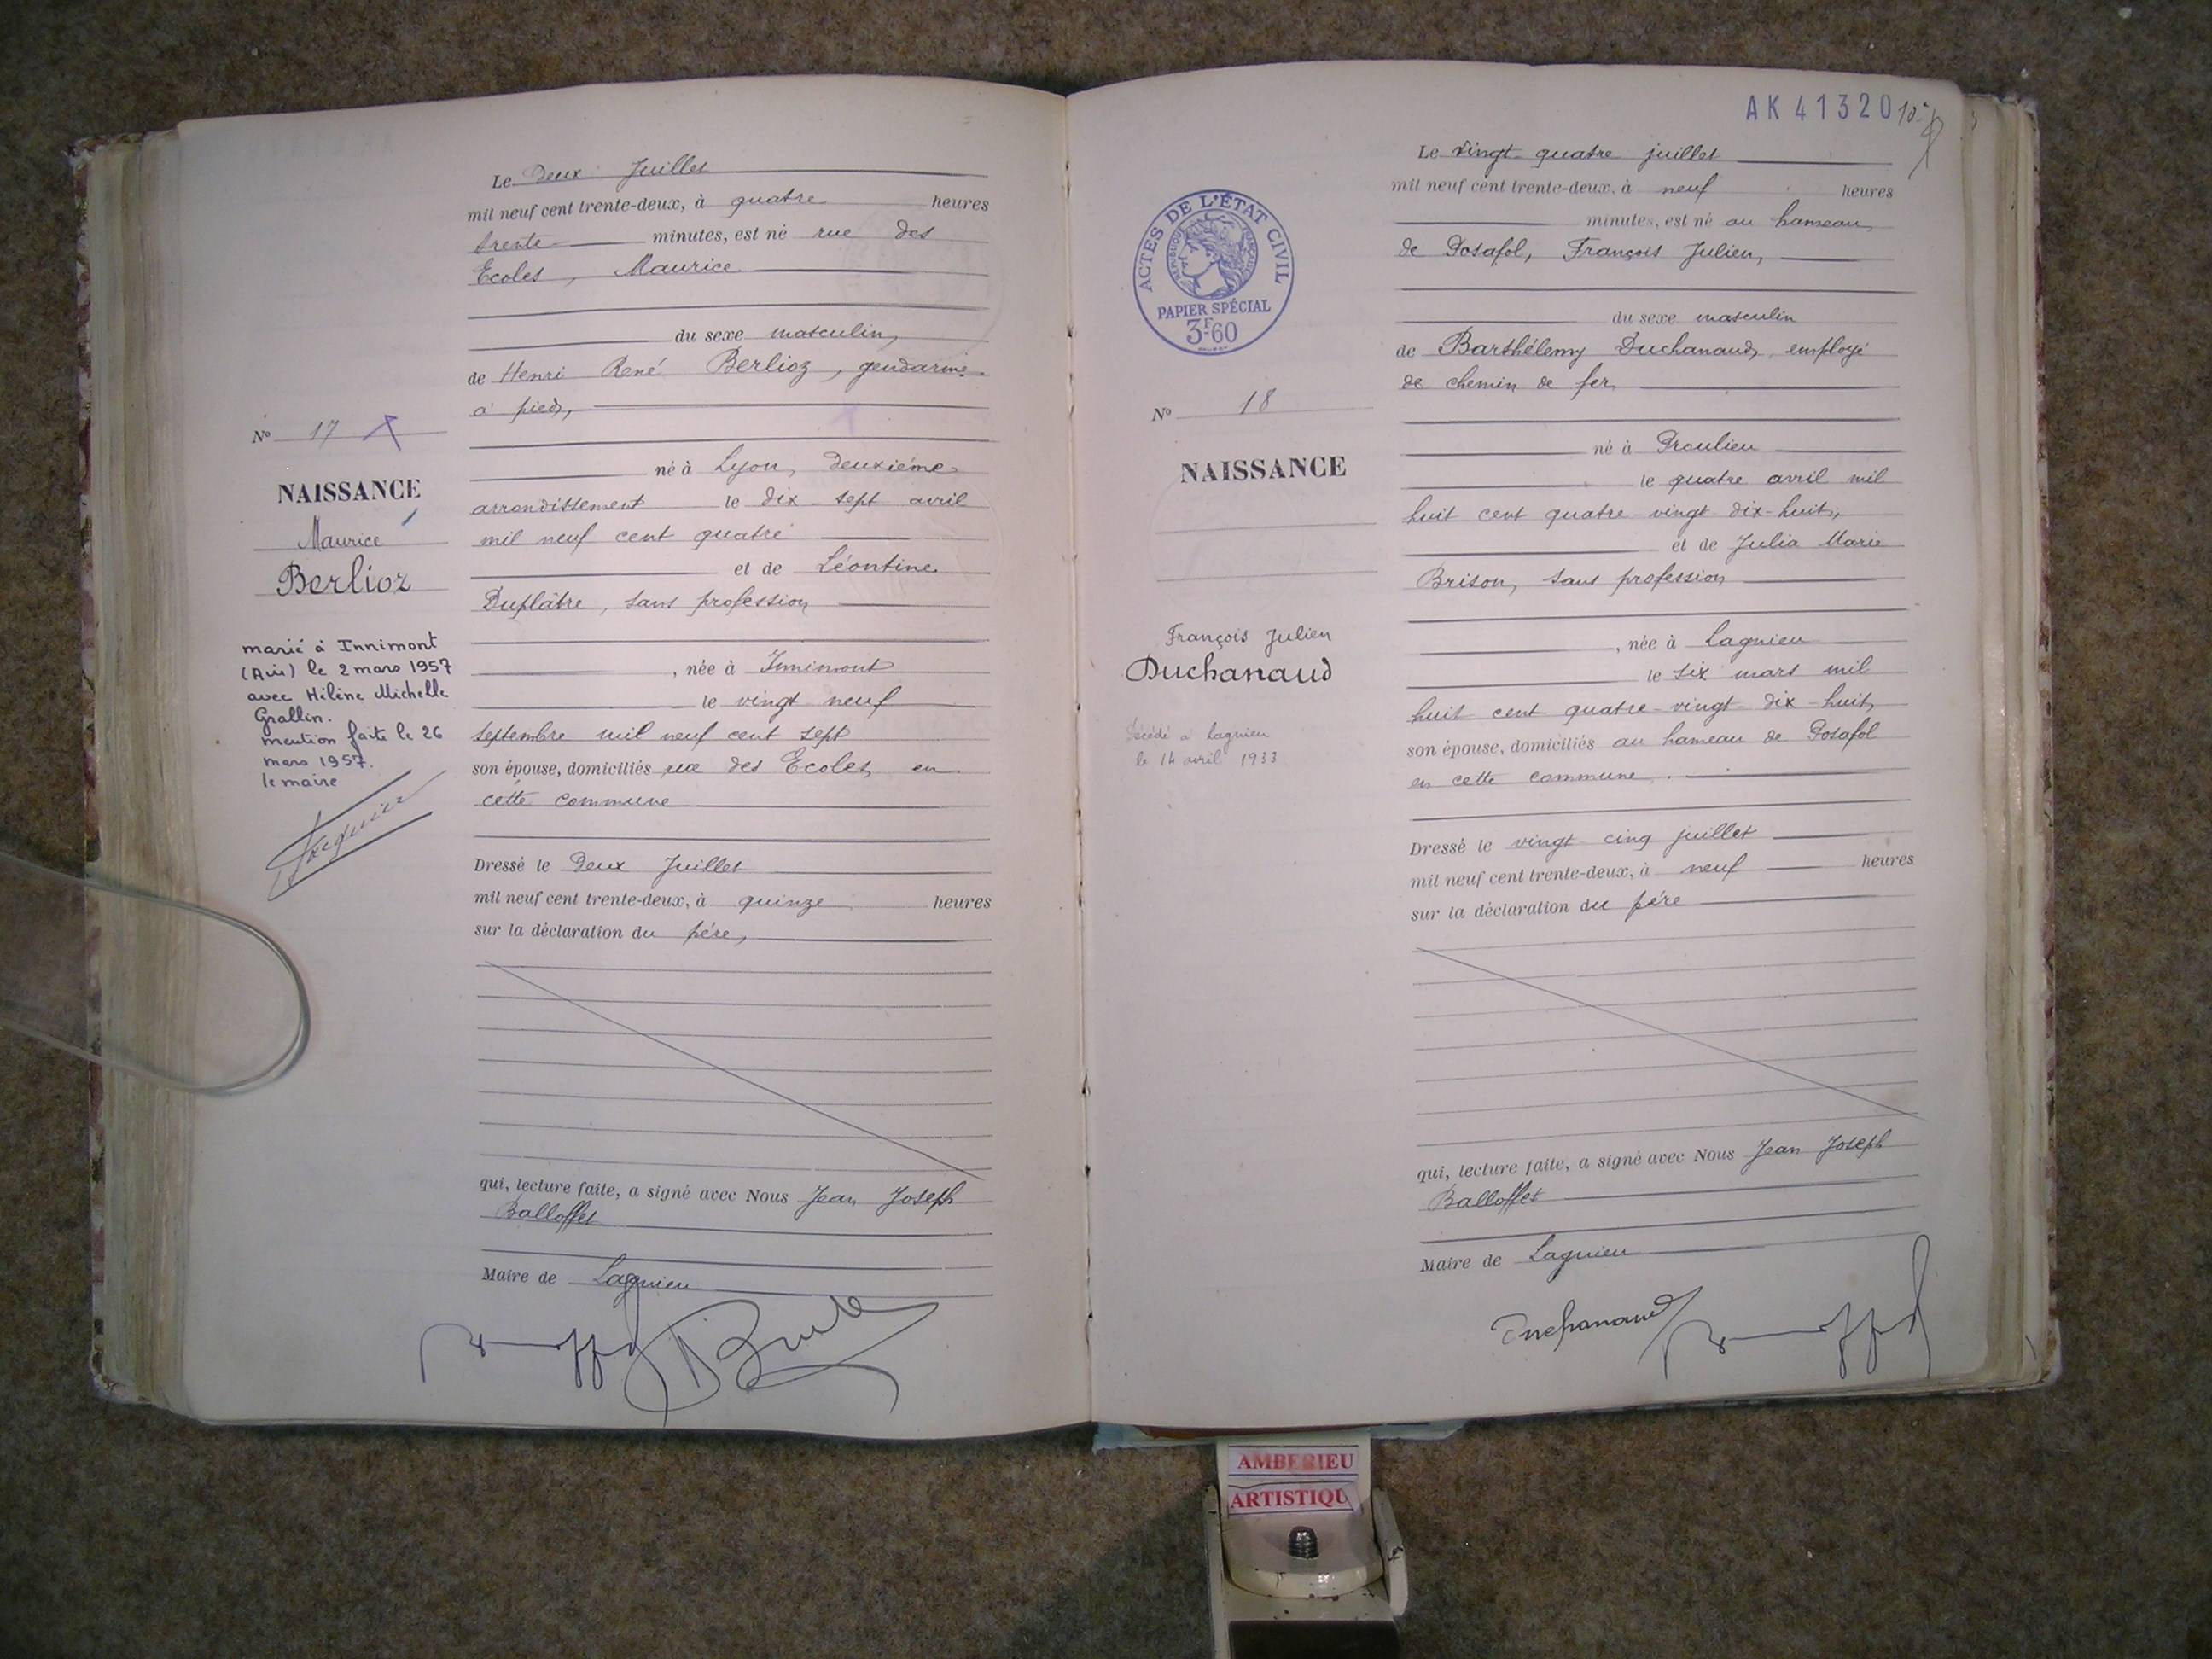 Le Deux Juillet
mil neuf cent trente-deux, à quatre heures
trente minutes, est né rue des
Ecoles, Maurice
du sexe masculin,
de Henri René Berlioz, gendarme
à pied,
né à Lyon, deuxième
arrondissement le dix-sept avril
mil neuf cent quatre
et de Léontine
Duplâtre, sans profession
, née à Innimont
le vingt neuf
septembre mil neuf cent sept
son épouse, domiciliés rue des Ecoles, en
cette commune
Dressé le Deux Juillet
mil neuf cent trente-deux, à quinze heures
sur la déclaration du père,
qui, lecture faite, a signé avec Nous Jean Joseph
Balloffet
Maire de Lagnieu
No 17
NAISSANCE
Maurice
Berlioz
marié à Innimont
(Ain) le 2 mars 1957
avec Hélène Michelle
Grallin.
mention faite le 26
mars 1957.
le maire
AK 41320
ACTES DE L'ÉTAT CIVIL
RÉPUBLIQUE FRANÇAISE
PAPIER SPÉCIAL
3F60
No 18
NAISSANCE
François Julien
Duchanaud
Décédé à Lagnieu
le 14 avril 1933
Le vingt-quatre juillet
mil neuf cent trente-deux, à neuf heures
minutes, est né au hameau
de Posafol, François Julien,
du sexe masculin
de Barthélemy Duchanaud, employé
de chemin de fer,
né à Proulieu
le quatre avril mil
huit cent quatre-vingt-dix-huit,
et de Julia Marie
Brison, sans profession
, née à Lagnieu
le six mars mil
huit cent quatre-vingt-dix-huit,
son épouse, domiciliés au hameau de Posafol
en cette commune.
Dressé le vingt-cinq juillet
mil neuf cent trente-deux, à neuf heures
sur la déclaration du père
qui, lecture faite, a signé avec Nous Jean Joseph
Balloffet
Maire de Lagnieu
Duchanaud
AMBERIEU
ARTISTIQU